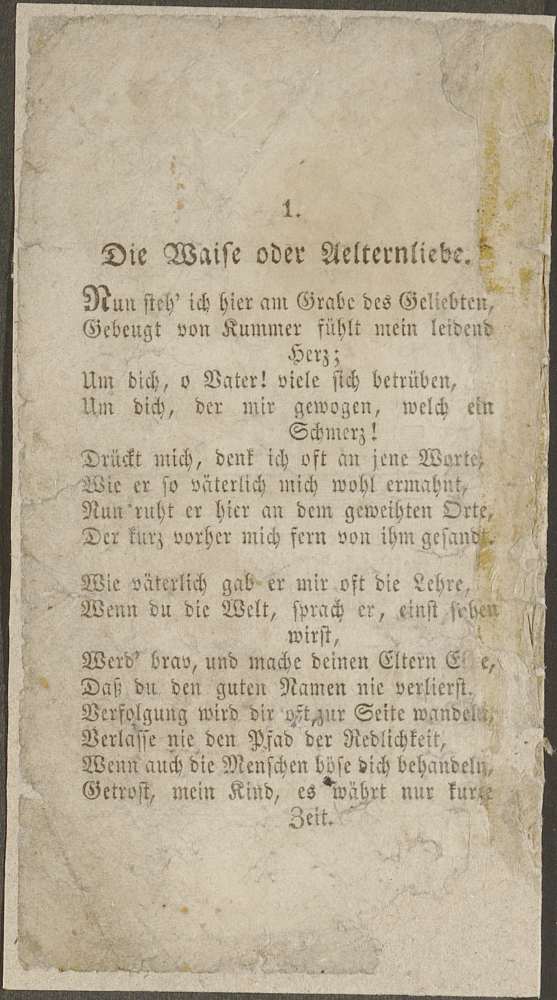 1.
Die Waise oder Aelternliebe.
Nun steh' ich hier am Grabe des Geliebten,
Gebeugt von Kummer fühlt mein leidend
Herz;
Um dich, o Vater! viele sich betrüben,
Um dich, der mir gewogen, welch ein
Schmerz!
Drückt mich, denk ich oft an jene Worte,
Wie er so väterlich mich wohl ermahnt,
Nun ruht er hier an dem geweihten Orte,
Der kurz vorher mich fern von ihm gesandt.
Wie väterlich gab er mir oft die Lehre,
Wenn du die Welt, sprach er, einst sehen
wirst,
Werd' brav, und mache deinen Eltern
Daß du den guten Namen nie verlierst.
Verfolgung wird dir oft zur Seite wandeln,
Verlasse nie den Pfad der Redlichkeit,
Wenn auch die Menschen böse dich behandeln,
Getrost, mein Kind, es währt nur kurze
Zeit.